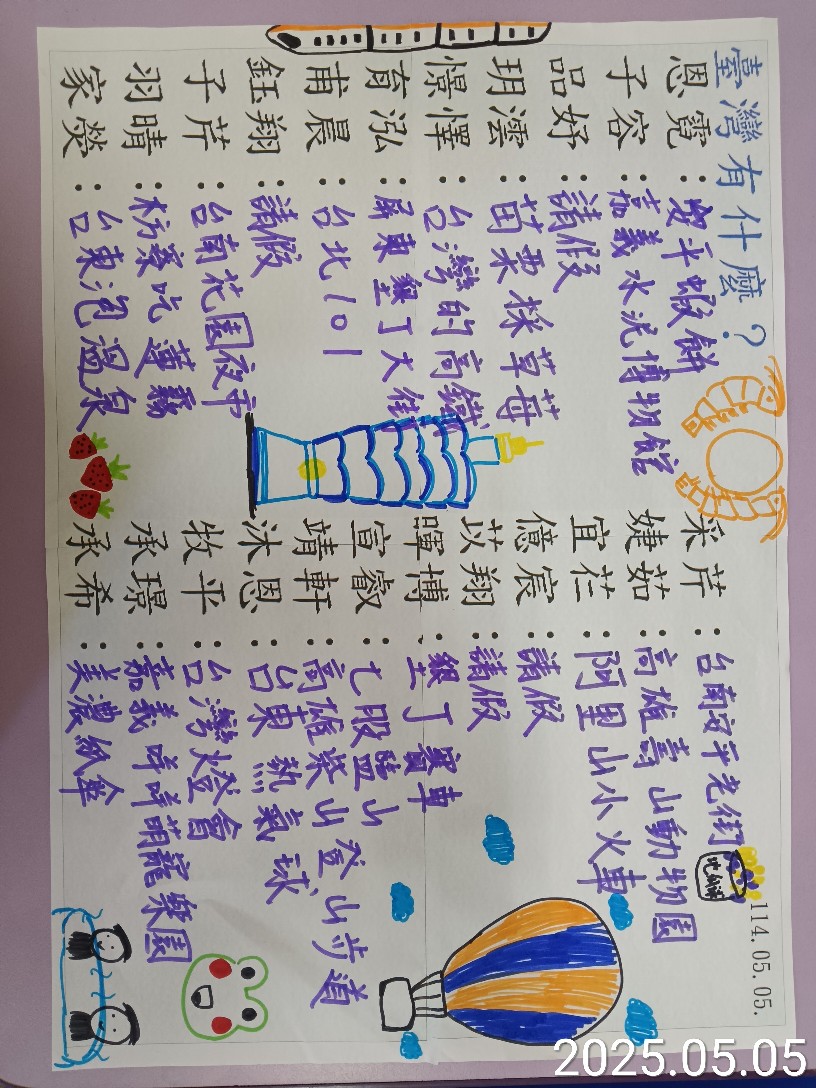 臺灣有什麼？
恩霓：安平蝦餅
子容：嘉義水泥博物館
品妤：請假
玥澐：苗栗採草莓
憬懌：台灣的高鐵
育泓：屏東墾丁大街
甫晨：台北101
鈺翔：請假
子芹：台南花園夜市
羽晴：枋寮吃蓮霧
家熒：台東泡溫泉
采芹：台南安平老街
婕茹：高雄壽山動物園
宜芢：阿里山小火車
億宸：請假
苡翔：請假
暐博：墾丁賽車
宣叡：七股鹽山
靖軒：高雄柴山登山步道
沐恩：台東熱氣球
牧平：台灣燈會
承璟：嘉義咩咩萌寵樂園
承希：美濃紙傘
114.05.05.
2025.05.05